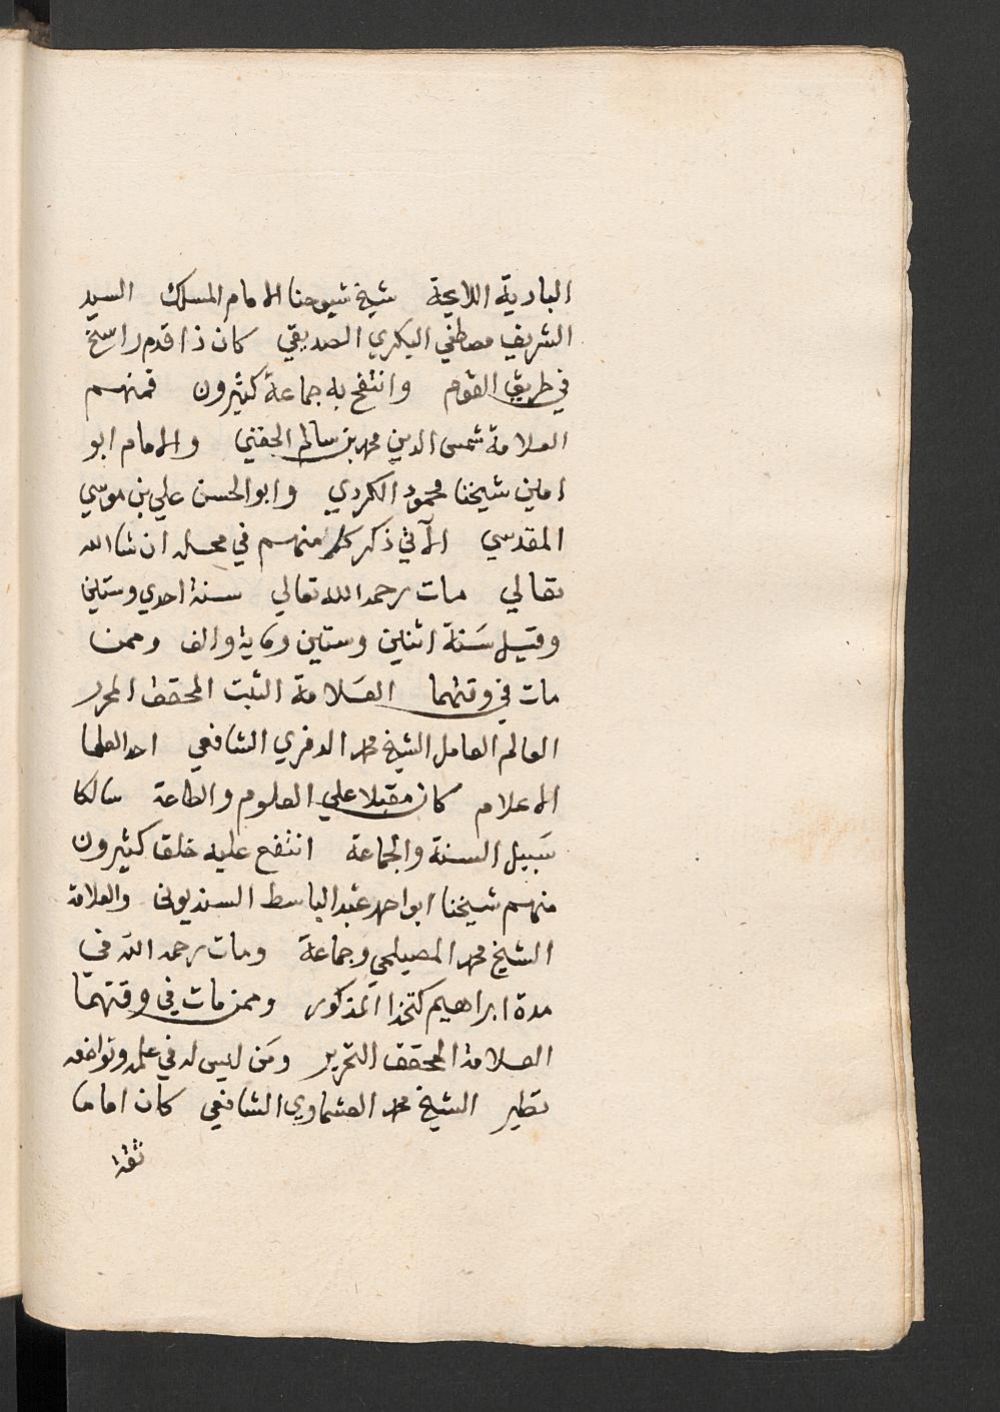 البادية اللايحة شيخ شيوخنا الامام المسلك السيد
الشريف مصطفي البكري الصديقي كان ذا قدم راسخ
في طريق القوم وانتفع به جماعة كثيرون فمنهم
العلامة شمس الدين محمد بن سالم الحفني والامام ابو
امين شيخنا محمود الكردي وابو الحسن علي بن موسي
المقدسي الآتي ذكر كل منهم في محله ان شا الله
تعالي مات رحمه الله تعالي سنة احدي وستين
وقيل سَنة اثنين وستين وماية والف وممن
مات في وقتهما العَلامة الثبت المحقق المحرر
العالم العامل الشيخ محمد الدفري الشافعي احد العلما
الاعلام كان مقبلا علي العلوم والطاعة سالكا
سَبيل السنة والجماعة انتفع عليه خلق كثيرون
منهم شيخنا ابو احمد عبد الباسط السنديوني والعلامة
الشيخ محمد المصيلحي وجماعة ومات رحمه الله في
مدة ابراهيم كتخذا المذكور وممن مات في وقتهما
العلامة المحقق النحرير ومَن ليس له في علمه وتواضعه
نظير الشيخ محمد العشماوي الشافعي كان اماما
ثقة